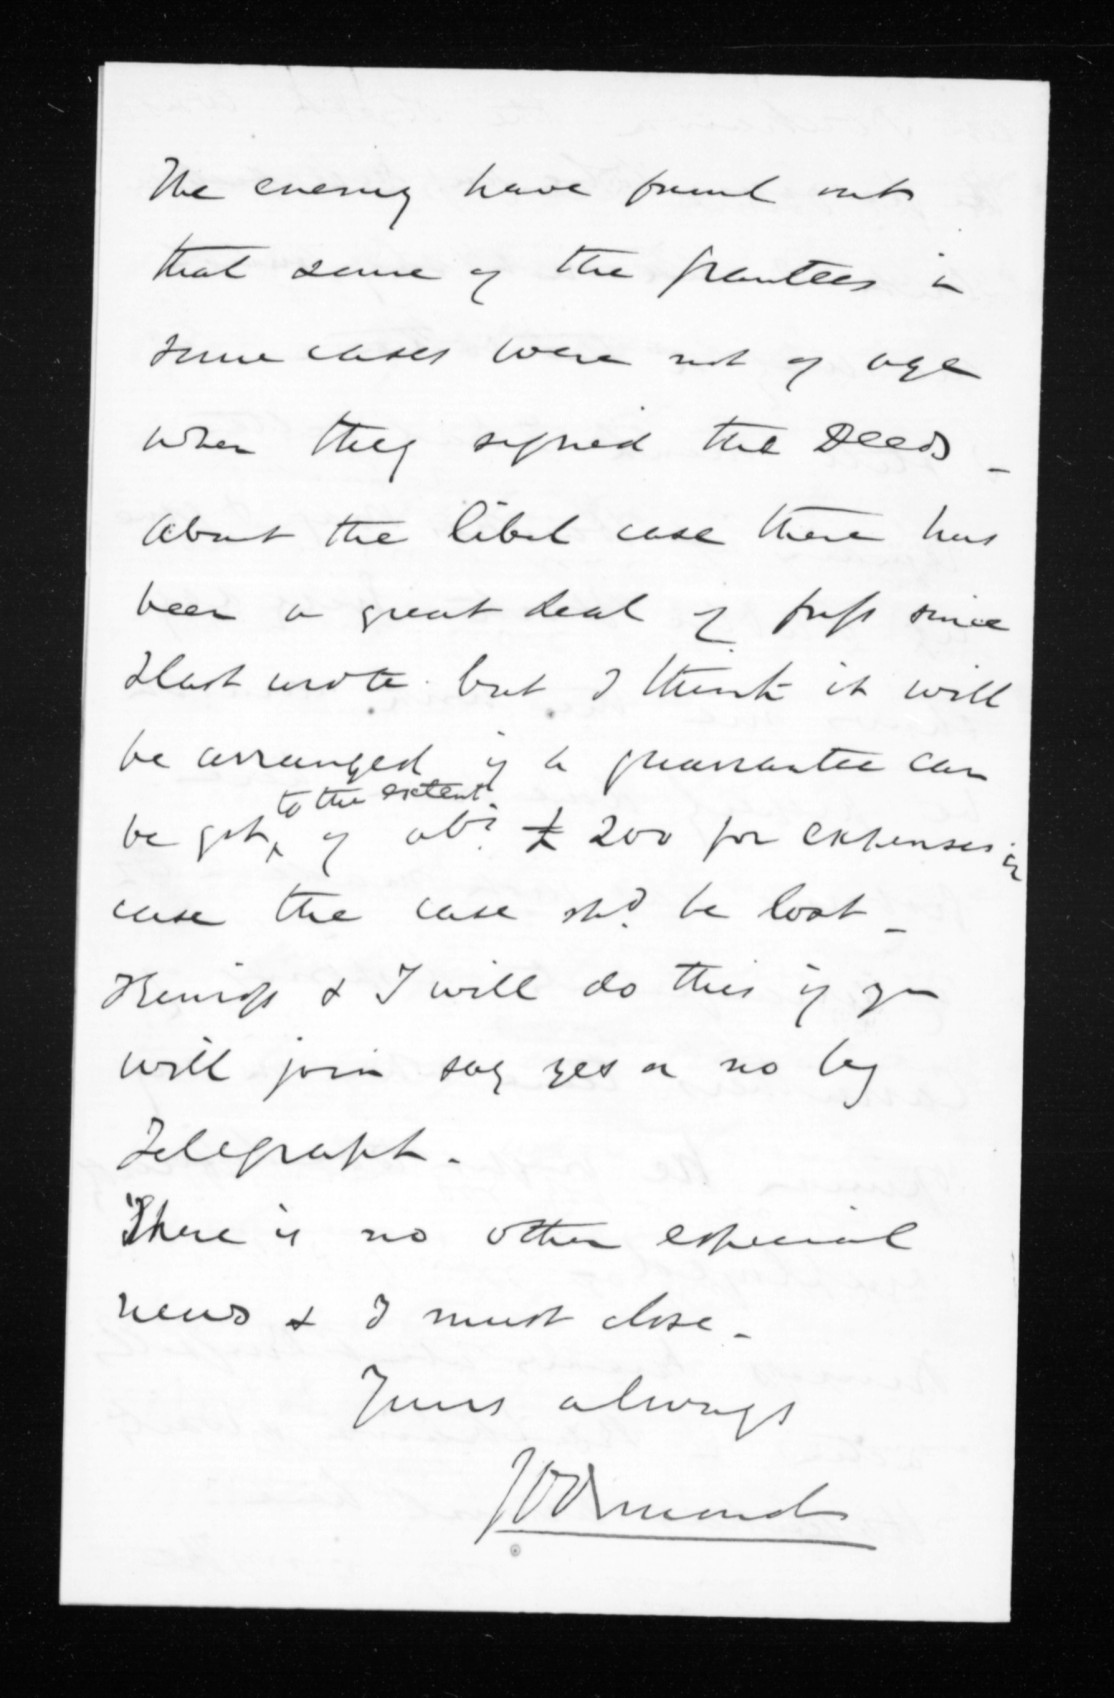 The enemy have found out
that some of the Grantees in
some cases were not of age
when they signed the Deeds _
About the libel case there has
been a great deal of fuss since
I last wrote but I think it will
be arranged if a guarantee can
to the extent
be got of abt. £200 for expenses in
case the case shd. be lost _
& I will do this if you
will join say yes or no by
Telegraph.
There is no other especial
news & I must close _
Yours always
JD Ormond